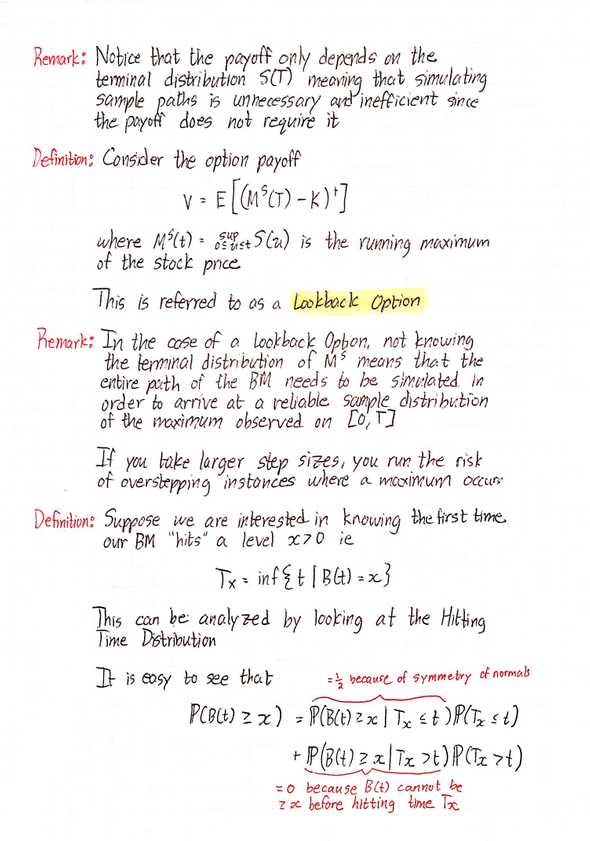 Remark: Notice that the payoff only depends on the
terminal distribution S(T) meaning that simulating
sample paths is unnecessary and inefficient since
the payoff does not require it
Definition: Consider the option payoff
V = E[(M^S(T) - K)^+]
where M^S(t) = sup_{0≤u≤t} S(u) is the running maximum
of the stock price
This is referred to as a Lookback Option
Remark: In the case of a Lookback Option, not knowing
the terminal distribution of M^S means that the
entire path of the BM needs to be simulated in
order to arrive at a reliable sample distribution
of the maximum observed on [0,T]
If you take larger step sizes, you run the risk
of overstepping instances where a maximum occurs
Definition: Suppose we are interested in knowing the first time
our BM "hits" a level x>0 ie
T_x = inf{t | B(t) = x}
This can be analyzed by looking at the Hitting
Time Distribution
It is easy to see that
= 1/2 because of symmetry of normals
ℙ(B(t) ≥ x) = ℙ(B(t) ≥ x | T_x ≤ t) ℙ(T_x ≤ t)
+ ℙ(B(t) ≥ x | T_x > t) ℙ(T_x > t)
= 0 because B(t) cannot be
≥ x before hitting time T_x